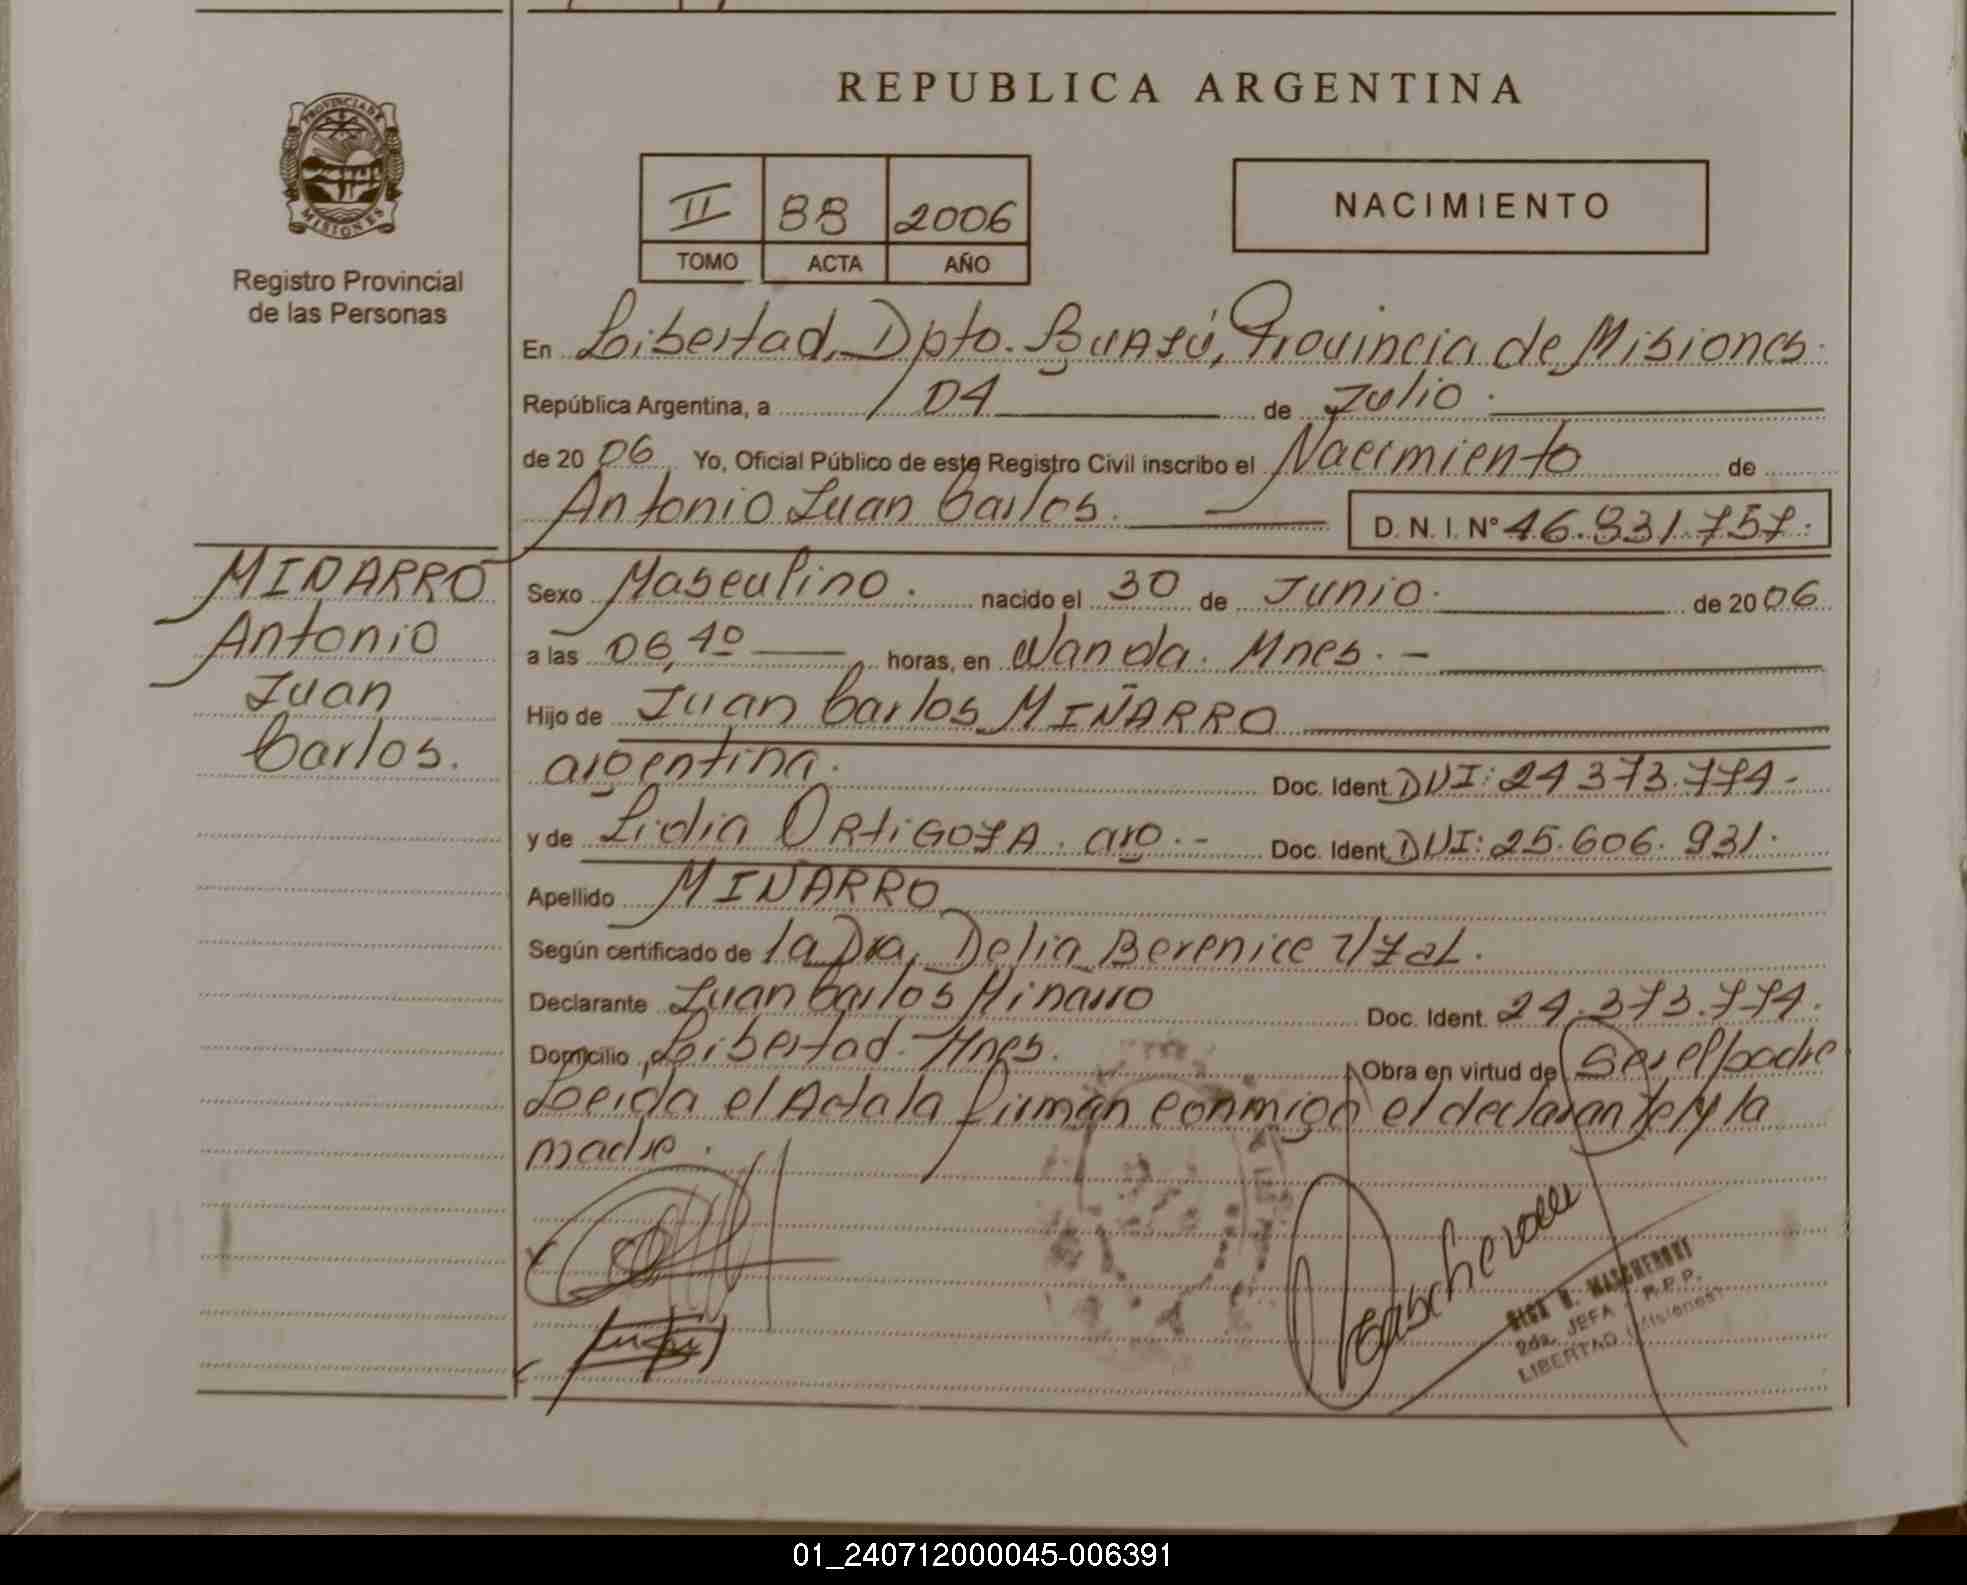 REPUBLICA ARGENTINA
PROVINCIA DE MISIONES
Registro Provincial
de las Personas
II 88 2006
TOMO ACTA AÑO
NACIMIENTO
En Libertad, Dpto. Iguazú, Provincia de Misiones.
República Argentina, a 04 de Julio.
de 2006 Yo, Oficial Público de este Registro Civil inscribo el Nacimiento de
Antonio Juan Carlos. D. N. I. N° 46.831.757.
MIÑARRO
Antonio
Juan
Carlos.
Sexo Masculino. nacido el 30 de Junio. de 2006
a las 06,40 horas, en Wanda. Mnes. -
Hijo de Juan Carlos MIÑARRO
argentina. Doc. Ident. DNI: 24 373.774-
y de Lidia ORTIGOZA. arg. - Doc. Ident. DNI: 25.606.931.
Apellido MIÑARRO
Según certificado de la Dra. Delia Berenice Uzal.
Declarante Juan Carlos Miñarro Doc. Ident. 24.373.774.
Domicilio Libertad - Mnes. Obra en virtud de Ser el padre
Leida el Acta la firman conmigo el declarante y la
madre.
MASCHERONI
2da. JEFA R.P.P.
LIBERTAD (Misiones)
01_240712000045-006391